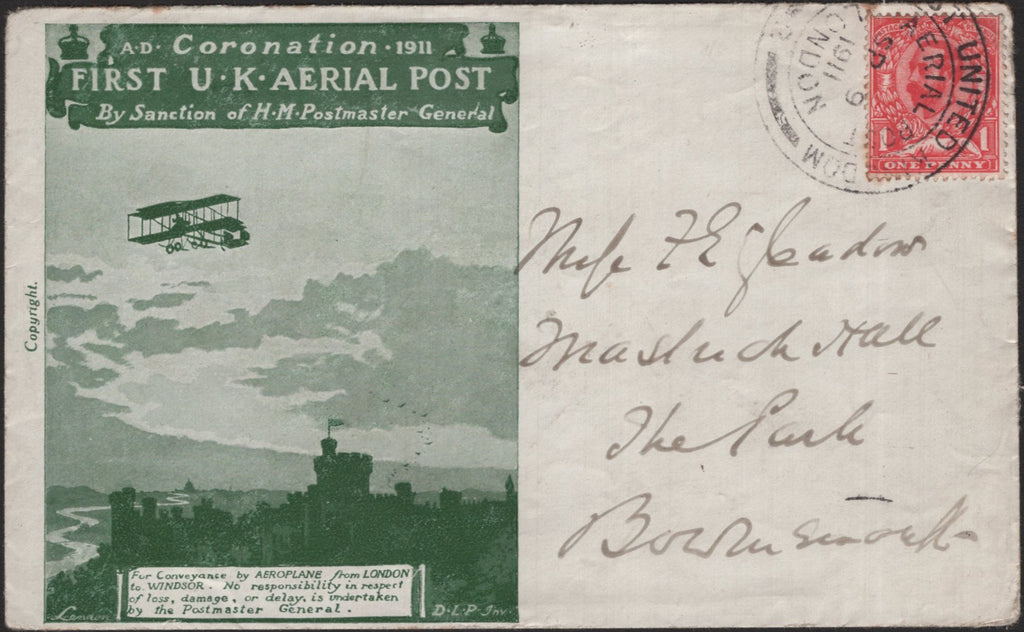 A·D· Coronation · 1911
FIRST U·K·AERIAL POST
By Sanction of H·M·Postmaster General
Copyright.
For Conveyance by AEROPLANE from LONDON
to WINDSOR. No responsibility in respect
of loss, damage, or delay, is undertaken
by the Postmaster General.
London
D·L·P·Inv·
UNITED
AERIAL
DOM
LONDON
1911
1 1
ONE PENNY
Miss F E
Hall
The Park
Bournemouth